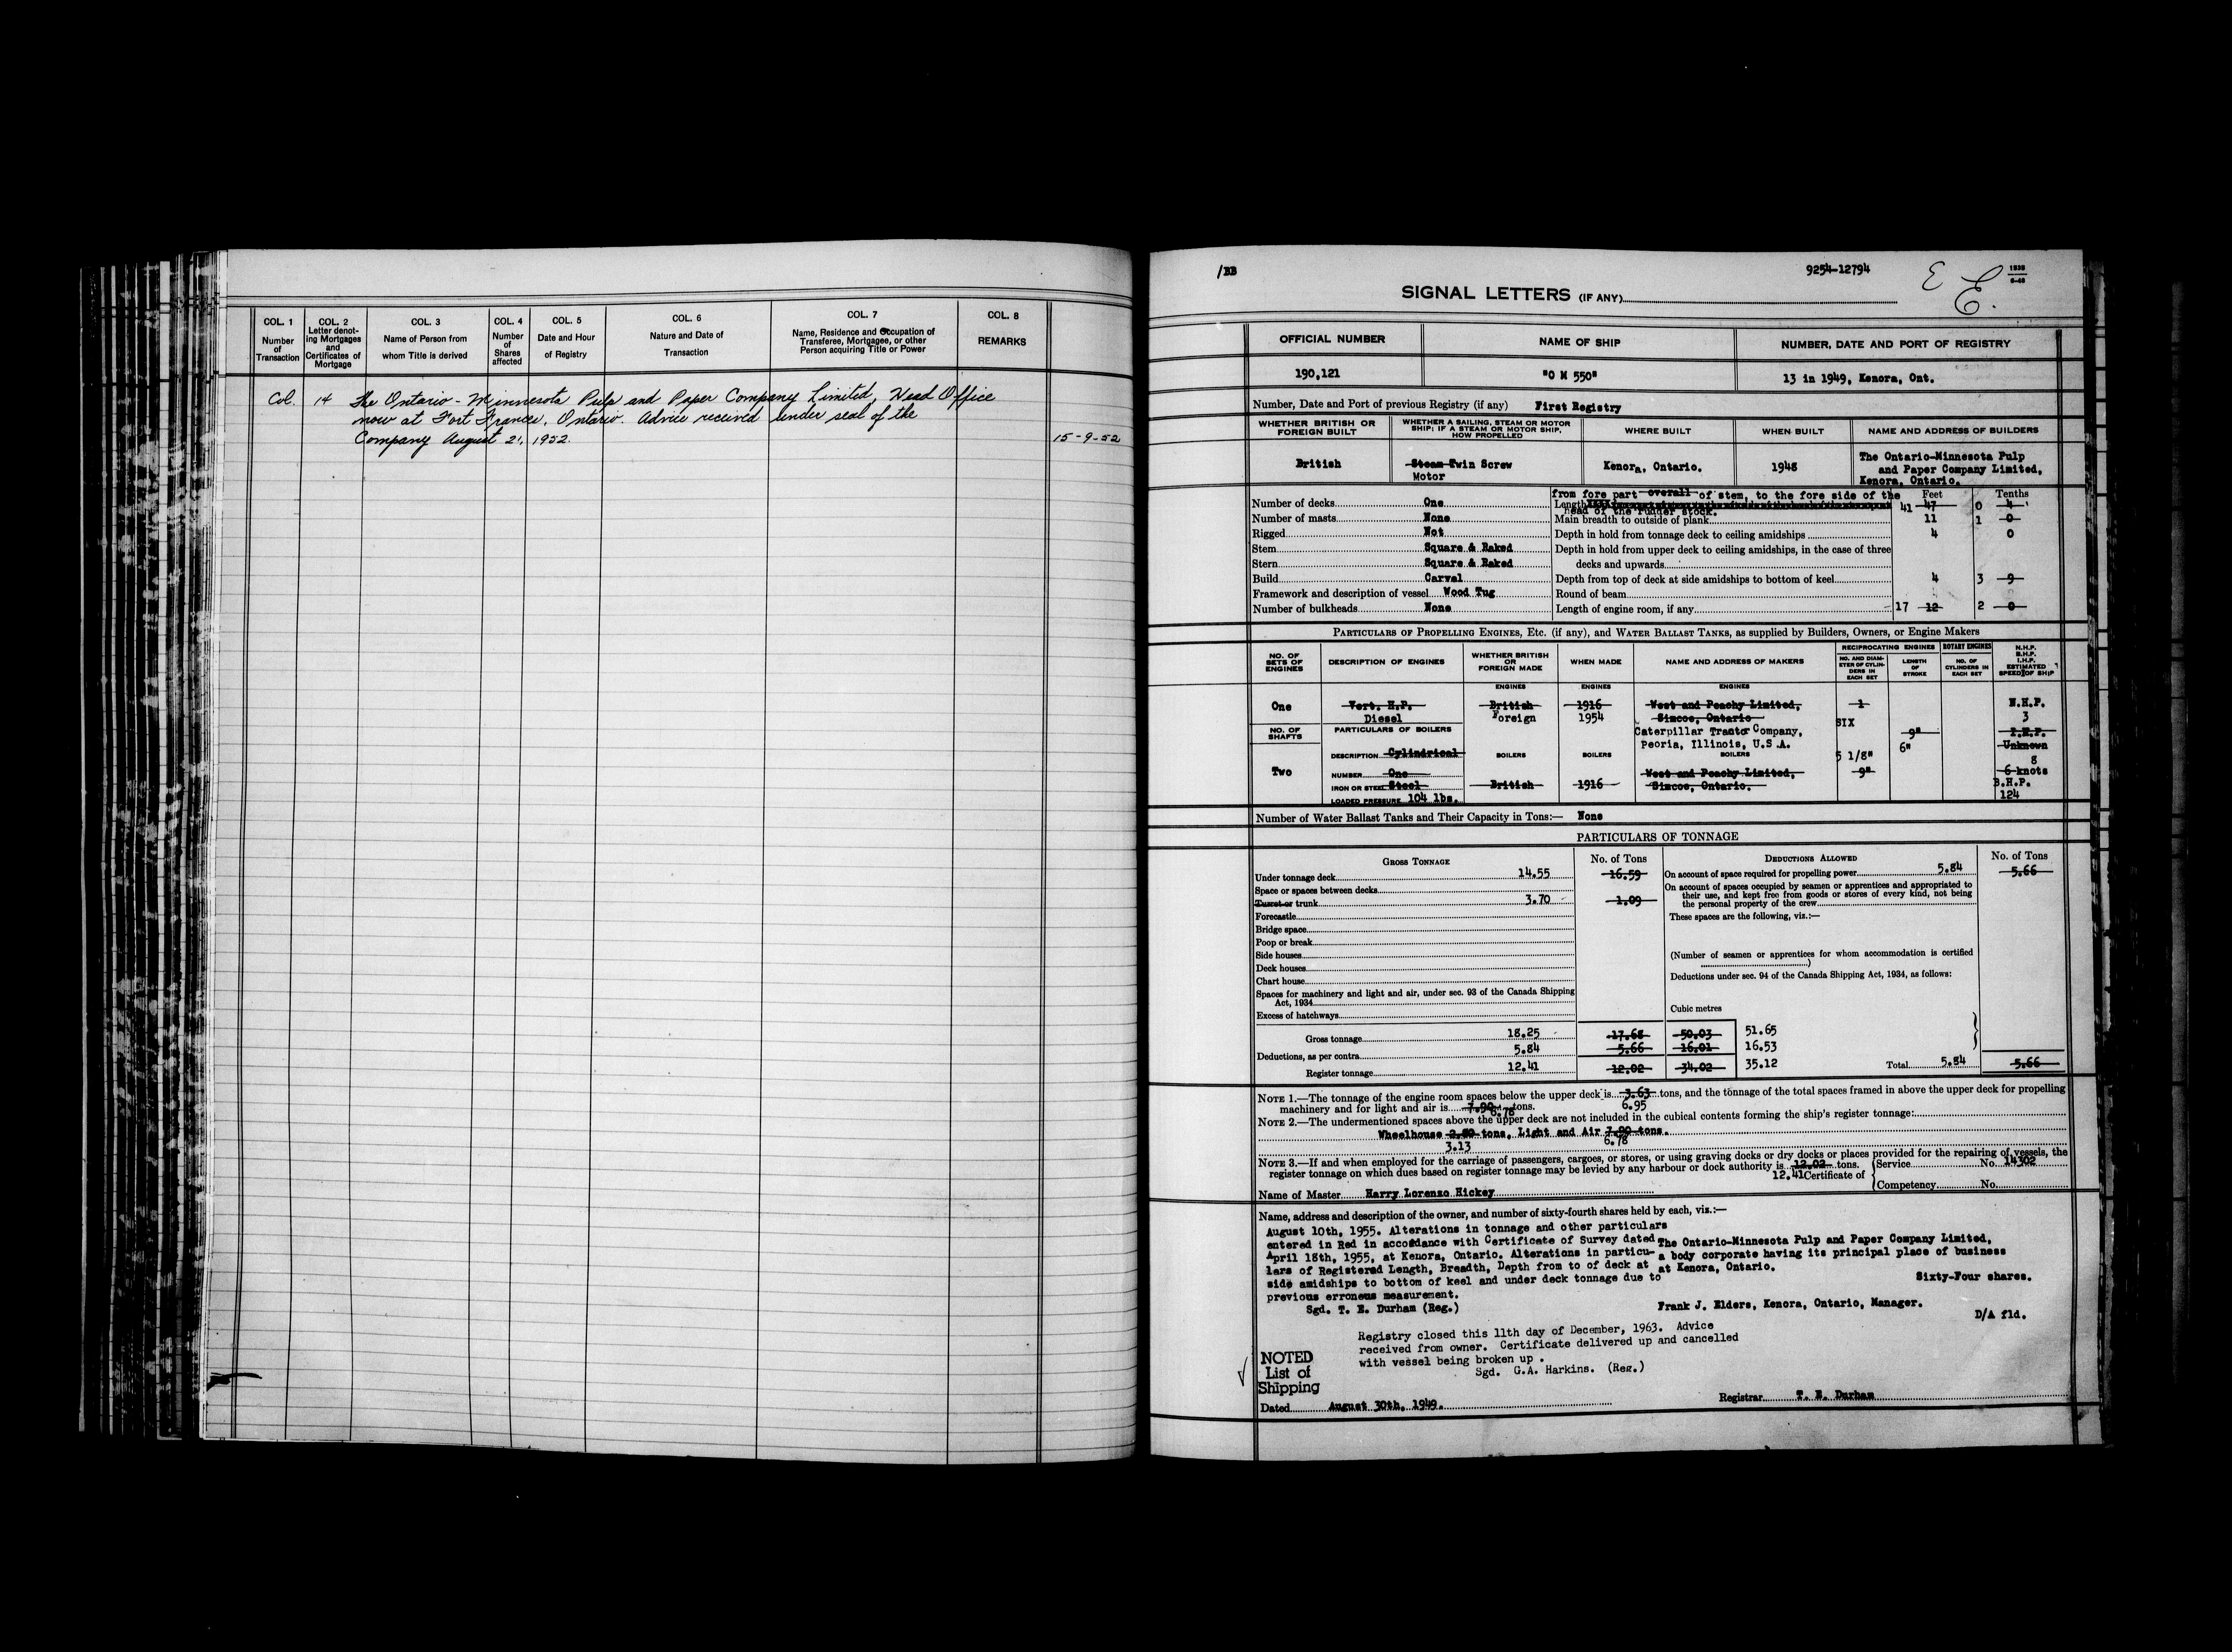 COL. 1 COL. 2 COL. 3 COL. 4 COL. 5 COL. 6 COL. 7 COL. 8
Number of Transaction
Letter denoting Mortgages and Certificates of Mortgage
Name of Person from whom Title is derived
Number of Shares affected
Date and Hour of Registry
Nature and Date of Transaction
Name, Residence and Occupation of Transferee, Mortgagee, or other Person acquiring Title or Power
REMARKS
Col. 14 The Ontario-Minnesota Pulp and Paper Company Limited, Head Office
now at Fort Frances, Ontario. Advice received under seal of the
Company August 21, 1952. 15-9-52
/BB 9254-12794
SIGNAL LETTERS (IF ANY)
OFFICIAL NUMBER NAME OF SHIP NUMBER, DATE AND PORT OF REGISTRY
190,121 "O M 550" 13 in 1949, Kenora, Ont.
Number, Date and Port of previous Registry (if any) First Registry
WHETHER BRITISH OR FOREIGN BUILT
WHETHER A SAILING, STEAM OR MOTOR SHIP; IF A STEAM OR MOTOR SHIP, HOW PROPELLED
WHERE BUILT WHEN BUILT NAME AND ADDRESS OF BUILDERS
British Steam Twin Screw Kenora, Ontario. 1948 The Ontario-Minnesota Pulp
Motor and Paper Company Limited,
Kenora, Ontario.
from fore part overall of stem, to the fore side of the Feet Tenths
Number of decks One Length 41 47 0 4
head of the rudder stock.
Number of masts None Main breadth to outside of plank 11 1 0
Rigged Not Depth in hold from tonnage deck to ceiling amidships 4 0
Stem Square & Raked Depth in hold from upper deck to ceiling amidships, in the case of three
Stern Square & Raked decks and upwards
Build Carvel Depth from top of deck at side amidships to bottom of keel 4 3 9
Framework and description of vessel Wood Tug Round of beam
Number of bulkheads None Length of engine room, if any 17 12 2 0
PARTICULARS OF PROPELLING ENGINES, ETC. (if any), and WATER BALLAST TANKS, as supplied by Builders, Owners, or Engine Makers
NO. OF SETS OF ENGINES
DESCRIPTION OF ENGINES
WHETHER BRITISH OR FOREIGN MADE
WHEN MADE
NAME AND ADDRESS OF MAKERS
RECIPROCATING ENGINES ROTARY ENGINES
NO. AND DIAMETER OF CYLINDERS IN EACH SET
LENGTH OF STROKE
NO. OF CYLINDERS IN EACH SET
N.H.P. B.H.P. I.H.P. ESTIMATED SPEED OF SHIP
ENGINES ENGINES ENGINES
One Vert. H.P. British 1916 West and Peachy Limited, 1 N.H.P.
Diesel Foreign 1954 Simcoe, Ontario SIX 3
NO. OF SHAFTS PARTICULARS OF BOILERS Caterpillar Tractor Company, 9" I.H.P.
Peoria, Illinois, U.S.A. 6" Unknown
DESCRIPTION Cylindrical BOILERS BOILERS BOILERS 5 1/8" 8
Two NUMBER One West and Peachy Limited, 9" 6 knots
IRON OR STEEL Steel British 1916 Simcoe, Ontario. B.H.P.
LOADED PRESSURE 104 lbs. 124
Number of Water Ballast Tanks and Their Capacity in Tons:— None
PARTICULARS OF TONNAGE
GROSS TONNAGE No. of Tons DEDUCTIONS ALLOWED No. of Tons
Under tonnage deck 14.55 16.59 On account of space required for propelling power 5.84 5.66
Space or spaces between decks
Turret or trunk 3.70 1.09
On account of spaces occupied by seamen or apprentices and appropriated to
their use, and kept free from goods or stores of every kind, not being
the personal property of the crew
Forecastle These spaces are the following, viz.:—
Bridge space
Poop or break
Side houses (Number of seamen or apprentices for whom accommodation is certified
Deck houses )
Chart house Deductions under sec. 94 of the Canada Shipping Act, 1934, as follows:
Spaces for machinery and light and air, under sec. 93 of the Canada Shipping
Act, 1934
Excess of hatchways Cubic metres
Gross tonnage 18.25 17.68 50.03 51.65
Deductions, as per contra 5.84 5.66 16.01 16.53
Register tonnage 12.41 12.02 34.02 35.12 Total 5.84 5.66
NOTE 1.—The tonnage of the engine room spaces below the upper deck is 3.63 tons, and the tonnage of the total spaces framed in above the upper deck for propelling
machinery and for light and air is 7.90 tons. 6.95
6.78
NOTE 2.—The undermentioned spaces above the upper deck are not included in the cubical contents forming the ship's register tonnage:
Wheelhouse 2.80 tons, Light and Air 7.90 tons.
3.13 6.78
NOTE 3.—If and when employed for the carriage of passengers, cargoes, or stores, or using graving docks or dry docks or places provided for the repairing of vessels, the
register tonnage on which dues based on register tonnage may be levied by any harbour or dock authority is 12.02 tons. Service No. 14302
12.41 Certificate of
Name of Master Harry Lorenzo Hickey Competency No.
Name, address and description of the owner, and number of sixty-fourth shares held by each, viz.:—
August 10th, 1955. Alterations in tonnage and other particulars
entered in Red in accordance with Certificate of Survey dated
April 18th, 1955, at Kenora, Ontario. Alterations in particu-
lars of Registered Length, Breadth, Depth from to of deck at
side amidships to bottom of keel and under deck tonnage due to
previous erroneus measurement.
Sgd. T. E. Durham (Reg.)
The Ontario-Minnesota Pulp and Paper Company Limited,
a body corporate having its principal place of business
at Kenora, Ontario.
Sixty-Four shares.
Frank J. Elders, Kenora, Ontario, Manager.
D/A fld.
Registry closed this 11th day of December, 1963. Advice
received from owner. Certificate delivered up and cancelled
with vessel being broken up .
Sgd. G.A. Harkins. (Reg.)
NOTED
List of
Shipping
Dated August 30th, 1949. Registrar T. E. Durham